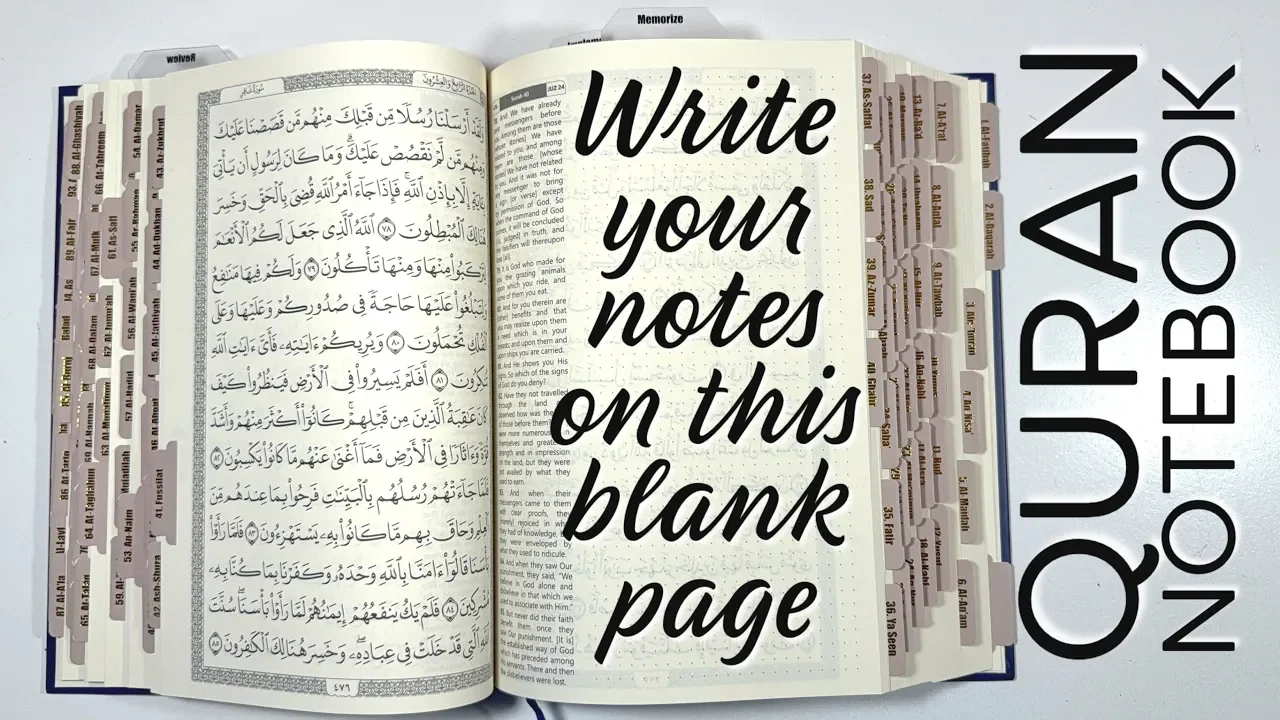 Memorize
Review
سُورَةُ غَافِرٍ
أَرْسَلْنَا رُسُلًا مِّن قَبْلِكَ مِنْهُم مَّن قَصَصْنَا عَلَيْكَ
وَمِنْهُم مَّن لَّمْ نَقْصُصْ عَلَيْكَ ۗ وَمَا كَانَ لِرَسُولٍ أَن يَأْتِىَ
إِلَّا بِإِذْنِ ٱللَّهِ ۚ فَإِذَا جَآءَ أَمْرُ ٱللَّهِ قُضِىَ بِٱلْحَقِّ وَخَسِرَ
هُنَالِكَ ٱلْمُبْطِلُونَ ٧٨ ٱللَّهُ ٱلَّذِى جَعَلَ لَكُمُ ٱلْأَنْعَٰمَ
مِنْهَا وَمِنْهَا تَأْكُلُونَ ٧٩ وَلَكُمْ فِيهَا مَنَٰفِعُ
وَلِتَبْلُغُوا۟ عَلَيْهَا حَاجَةً فِى صُدُورِكُمْ وَعَلَيْهَا وَعَلَى
تُحْمَلُونَ ٨٠ وَيُرِيكُمْ ءَايَٰتِهِۦ فَأَىَّ ءَايَٰتِ ٱللَّهِ
٨١ أَفَلَمْ يَسِيرُوا۟ فِى ٱلْأَرْضِ فَيَنظُرُوا۟ كَيْفَ
عَٰقِبَةُ ٱلَّذِينَ مِن قَبْلِهِمْ ۚ كَانُوٓا۟ أَكْثَرَ مِنْهُمْ وَأَشَدَّ
وَءَاثَارًا فِى ٱلْأَرْضِ فَمَآ أَغْنَىٰ عَنْهُم مَّا كَانُوا۟ يَكْسِبُونَ ٨٢
جَآءَتْهُمْ رُسُلُهُم بِٱلْبَيِّنَٰتِ فَرِحُوا۟ بِمَا عِندَهُم مِّنَ
وَحَاقَ بِهِم مَّا كَانُوا۟ بِهِۦ يَسْتَهْزِءُونَ ٨٣ فَلَمَّا رَأَوْا۟
قَالُوٓا۟ ءَامَنَّا بِٱللَّهِ وَحْدَهُۥ وَكَفَرْنَا بِمَا كُنَّا بِهِۦ
٨٤ فَلَمْ يَكُ يَنفَعُهُمْ إِيمَٰنُهُمْ لَمَّا رَأَوْا۟ بَأْسَنَا ۖ سُنَّتَ
ٱلَّتِى قَدْ خَلَتْ فِى عِبَادِهِۦ ۖ وَخَسِرَ هُنَالِكَ ٱلْكَٰفِرُونَ ٨٥
٤٧٦
Surah 40 JUZ 24
And We have already
messengers before
among them are those
We have
to you, and among
are those [whose
We have not related
you. And it was not for
messenger to bring
sign [or verse] except
permission of God. So
the command of God
it will be concluded
judged] in truth, and
will thereupon
It is God who made for
the grazing animals
which you ride, and
some of them you eat.
And for you therein are
benefits and that
you may realize upon them
need which is in your
and upon them and
upon ships you are carried.
And He shows you His
So which of the signs
of God do you deny?
Have they not travelled
through the land
observed how was the
of those before them
were more numerous
themselves and greater
strength and in impression
on the land, but they were
not availed by what they
used to earn.
83. And when their
messengers came to them
with clear proofs, they
[merely] rejoiced in what
they had of knowledge,
were enveloped by
what they used to ridicule.
84. And when they saw Our
punishment, they said, "We
believe in God alone and
disbelieve in that which we
used to associate with Him."
85. But never did their faith
benefit them once they
saw Our punishment. [It is]
the established way of God
which has preceded among
His servants. And there and then
the disbelievers were lost.
Write
your
notes
on this
blank
page
QURAN
NOTEBOOK
1. Al-Fatihah
2. Al-Baqarah
4. An Nisa'
5. Al-Maidah
6. Al-An'am
7. Al-A'raf
8. Al-Anfal
9. At-Tawbah
11. Hud
13. Ar-Ra'd
16. An-Nahl
35. Fatir
36. Ya Seen
37. As-Saffat
38. Sad
39. Az-Zumar
40. Ghafir
41. Fussilat
42. Ash-Shura
43. Az-Zukhruf
44. Ad-Dukhan
45. Al-Jathiyah
53. An-Najm
54. Al-Qamar
55. Ar-Rahman
56. Al-Waqi'ah
57. Al-Hadid
61. As-Saff
62. Al-Jumu'ah
63. Al-Munafiqun
64. At-Taghabun
65. At-Talaq
66. At-Tahreem
67. Al-Mulk
68. Al-Qalam
69. Al-Haqqah
86. At-Tariq
87. Al-A'la
88. Al-Ghashiyah
89. Al-Fajr